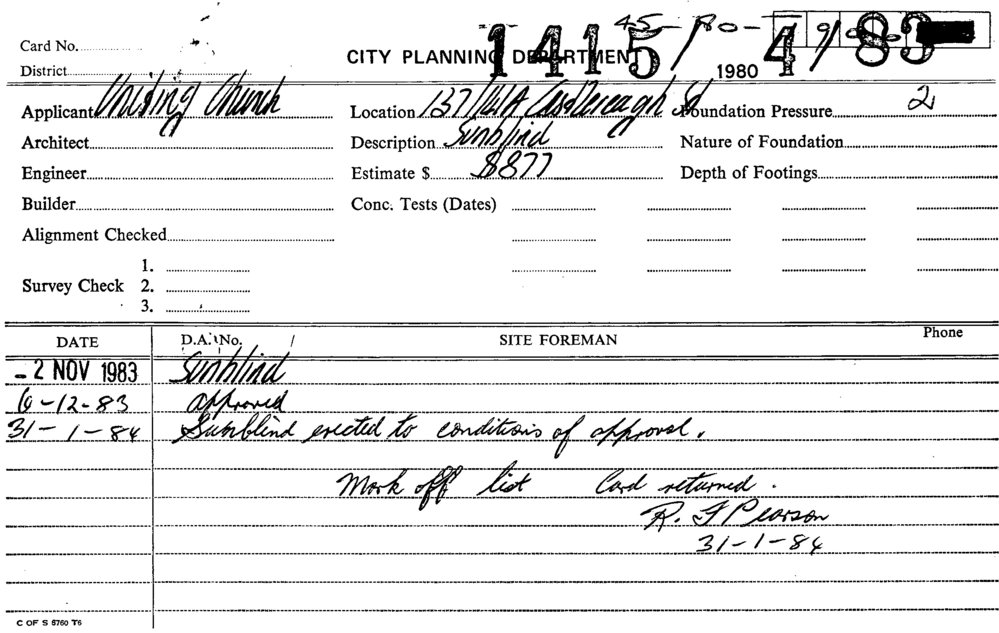 45-80-4/83
Card No.
CITY PLANNING DEPARTMENT
1415/
1980
District
Applicant Uniting Church Location 137/141A Castlereagh St Foundation Pressure 2
Architect Description Sunblind Nature of Foundation
Engineer Estimate $ $877 Depth of Footings
Builder Conc. Tests (Dates)
Alignment Checked
1.
Survey Check 2.
3.
DATE D.A. No. SITE FOREMAN Phone
- 2 NOV 1983 Sunblind
6-12-83 approved
31-1-84 Sunblind erected to conditions of approval.
Mark off list Card returned.
R. F Pearson
31-1-84
C OF S 8760 T6